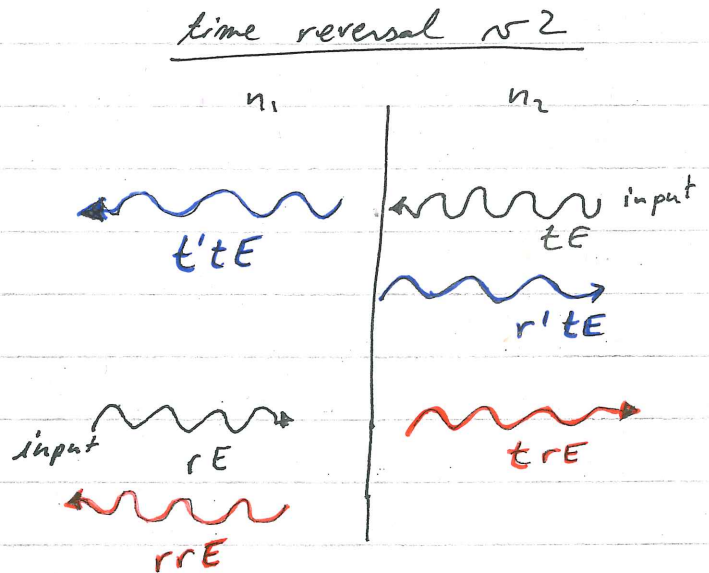 time reversal v2
n₁ n₂
input
tE
t'tE
r'tE
input
rE
trE
rrE